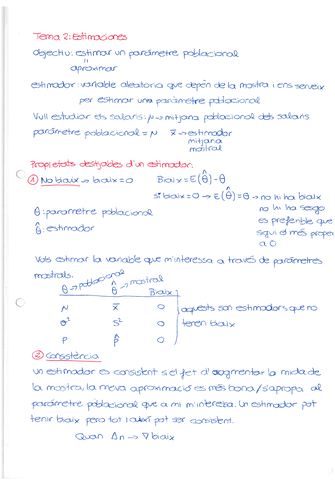 Tema 2: Estimacions
objectiu: estimar un paràmetre poblacional
=
aproximar
estimador: variable aleatoria que depèn de la mostra i ens serveix
per estimar una paràmetre poblacional
Vull estudiar els salaris: μ → mitjana poblacional dels salaris
paràmetre poblacional = μ x̄ → estimador
mitjana
mostral
Propietats desitjables d'un estimador:
① No biaix → biaix = 0 Biaix = E(θ̂) - θ
si biaix = 0 → E(θ̂) = θ → no hi ha biaix
no hi ha sesgo
θ: parametre poblacional
es preferible que
θ̂: estimador
sigui el més proper
a 0
Vols estimar la variable que m'interessa a través de paràmetres
mostrals.
θ → poblacional θ̂ → mostral Biaix
μ x̄ 0
σ² S² 0
P p̂ 0
aquests son estimadors que no
tenen biaix
② Consistència
un estimador es consistent si el fet d'augmentar la mida de
la mostra, la meva aproximació es més bona/s'apropa al
paràmetre poblacional que a mi m'interessa. Un estimador pot
tenir biaix però tot i així pot ser consistent.
Quan Δn → ∇ biaix